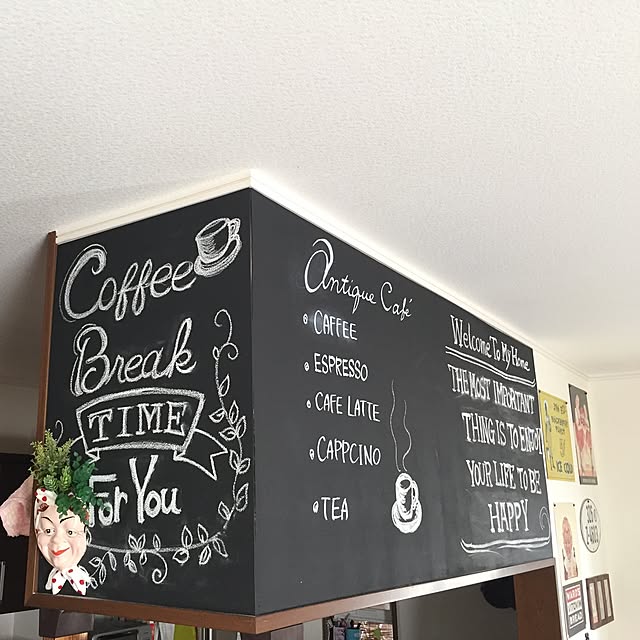 Coffee
Break
TIME
For You
Antique Café
CAFFEE
ESPRESSO
CAFE LATTE
CAPPCINO
TEA
Welcome To My Home
THE MOST IMPORTANT
THING IS TO ENJOY
YOUR LIFE TO BE
HAPPY
ICE COLD